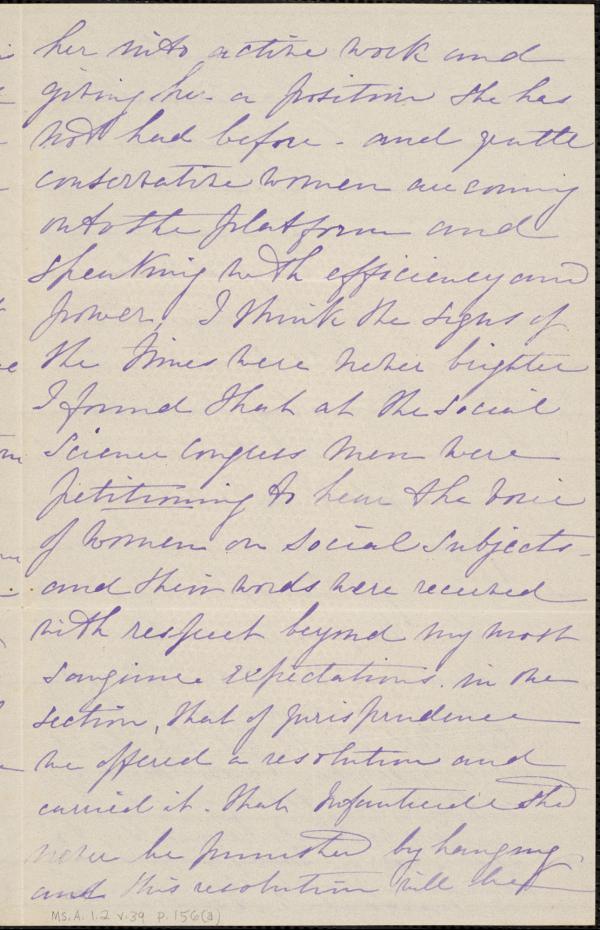 her into active work and
giving her a position she has
not had before - and gentle
conservative women are coming
onto the platform and
speaking with efficiency and
power, I think the signs of
the times were never brighter
I found that at the Social
Science Congress men were
petitioning to hear the voice
of women on social subjects -
and their words were received
with respect beyond my most
sanguine expectations. in one
section, that of jurisprudence
we offered a resolution and
carried it. that Infanticide shd
never be punished by hanging
and this resolution will be
MS. A. 1.2 v.39 p. 156(a)